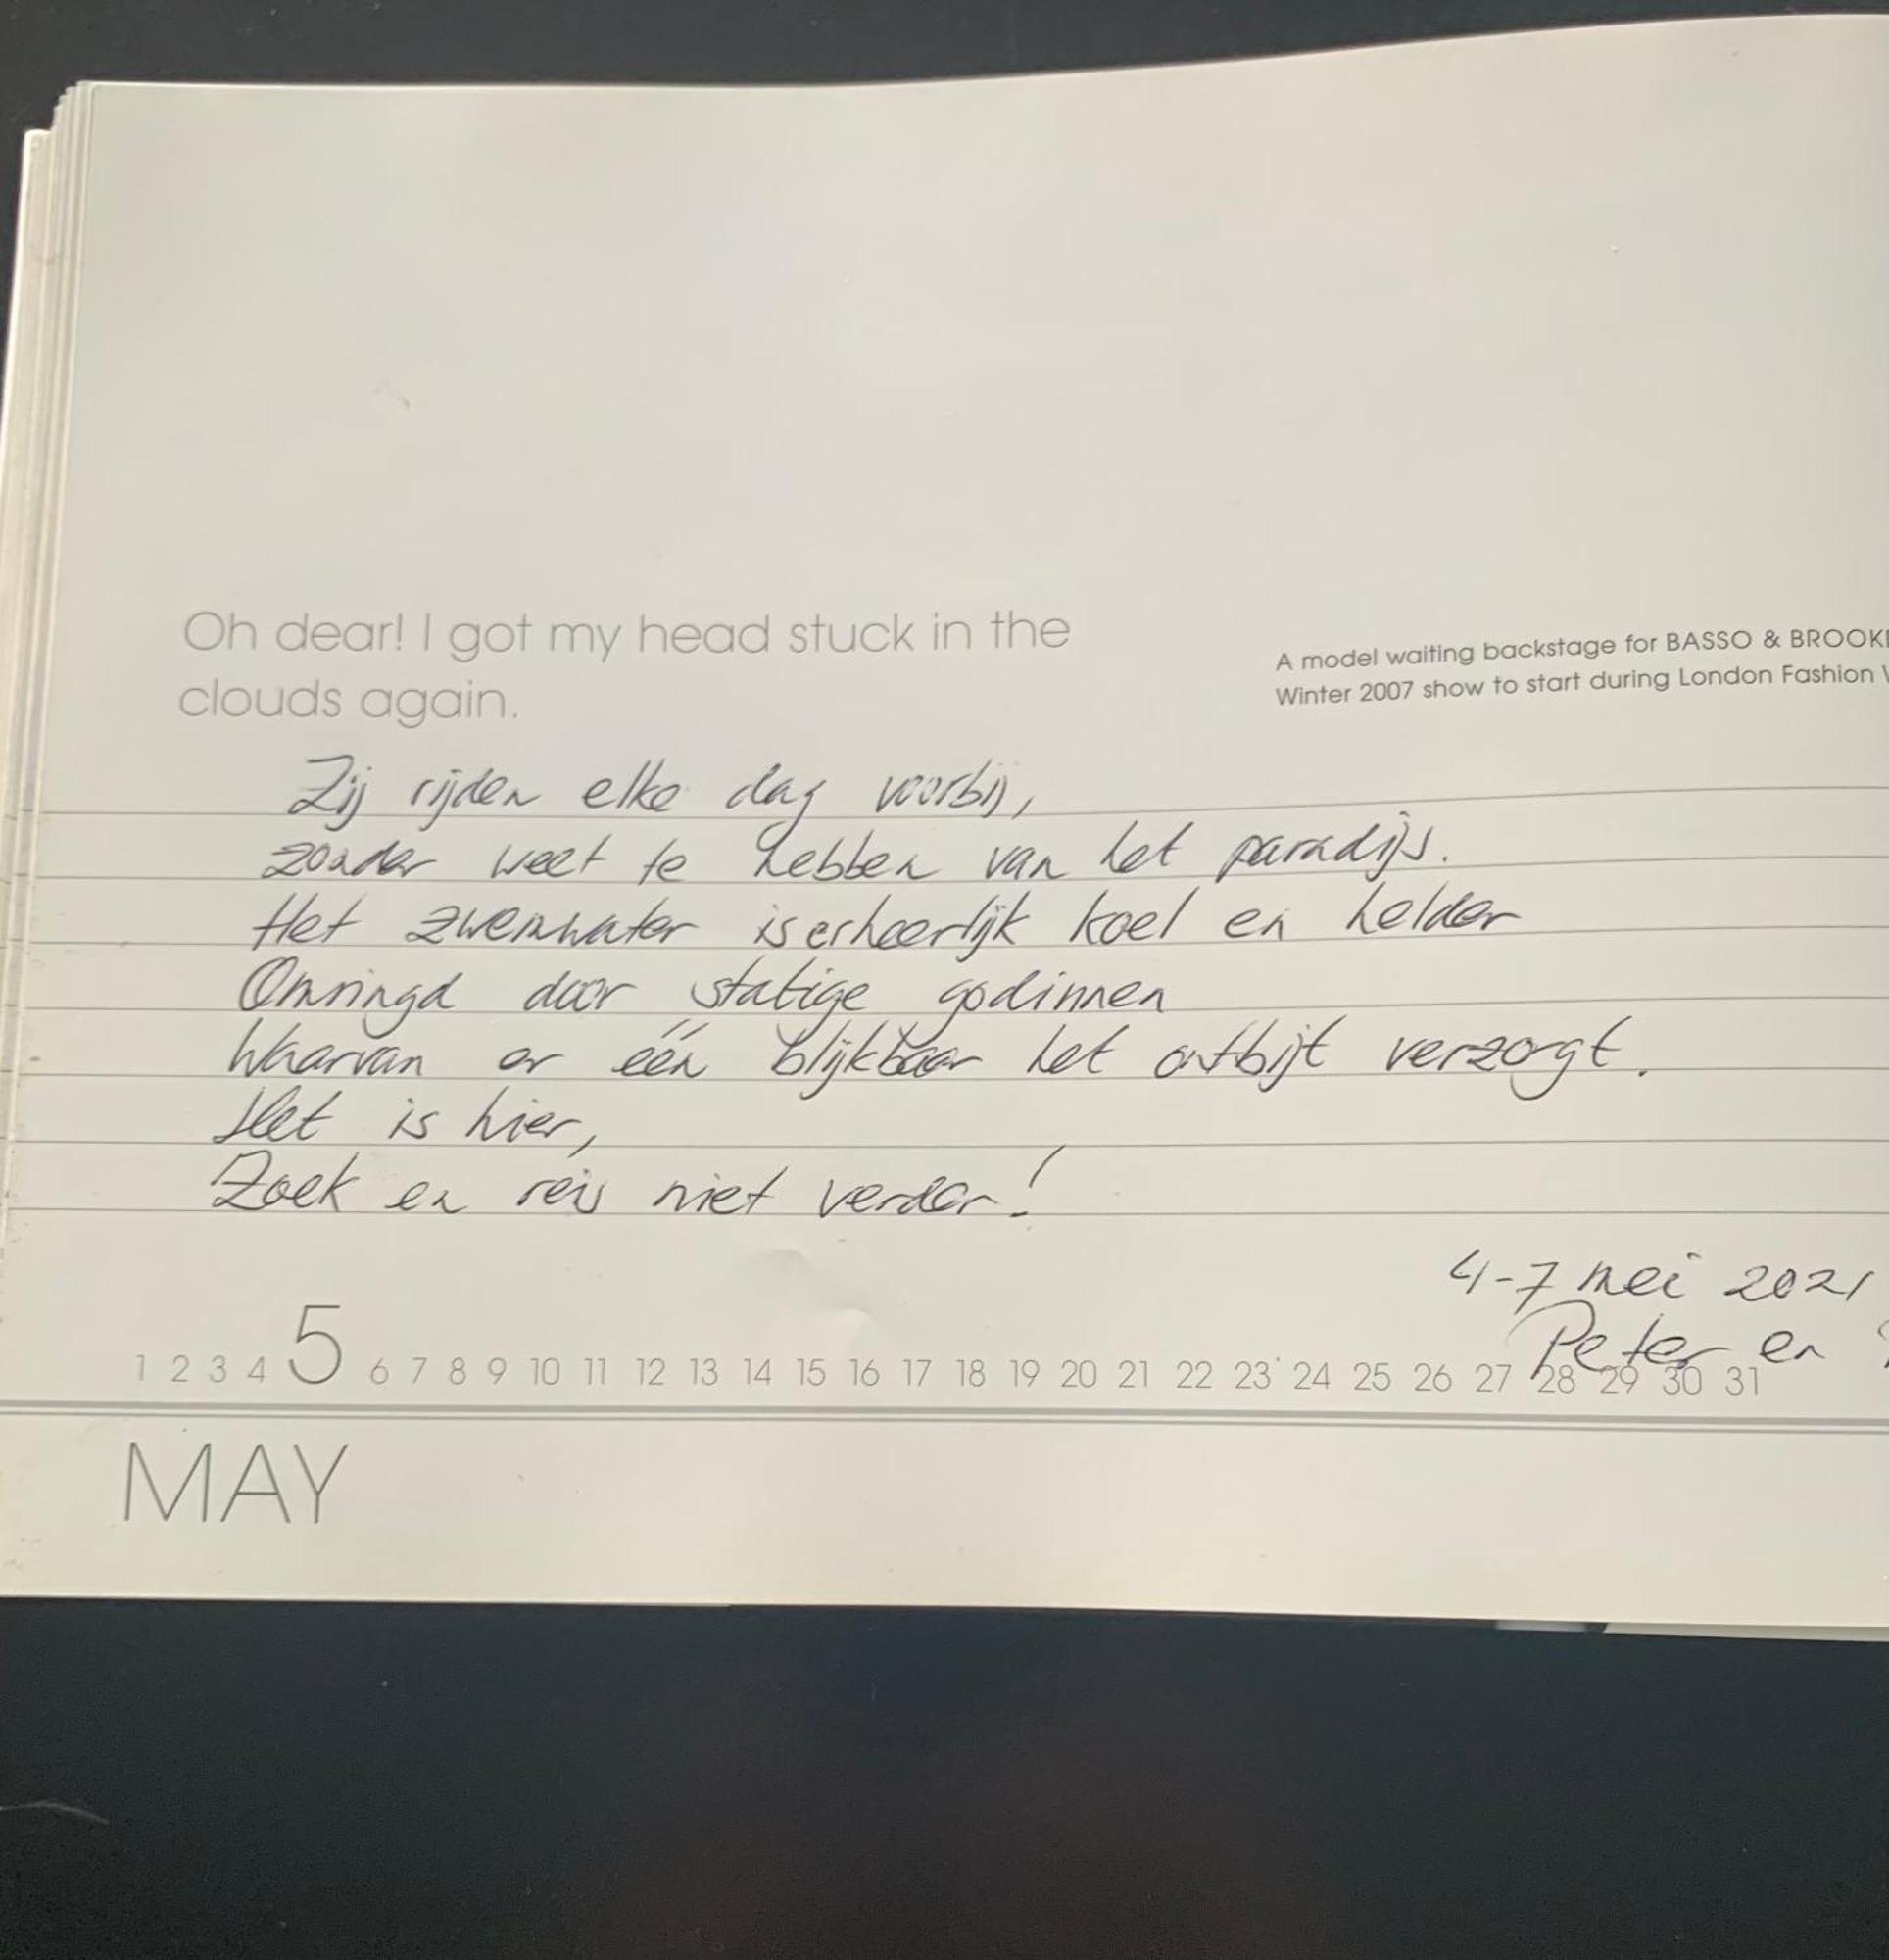 Oh dear! I got my head stuck in the
clouds again.
A model waiting backstage for BASSO & BROOK
Winter 2007 show to start during London Fashion
Zij rijden elke dag voorbij,
zonder weet te hebben van het paradijs.
Het zwemwater is er heerlijk koel en helder
Omringd door statige godinnen
Waarvan er één blijkbaar het ontbijt verzorgt.
Het is hier,
Zoek en reis niet verder!
4-7 mei 2021
Peter en
1 2 3 4 5 6 7 8 9 10 11 12 13 14 15 16 17 18 19 20 21 22 23 24 25 26 27 28 29 30 31
MAY